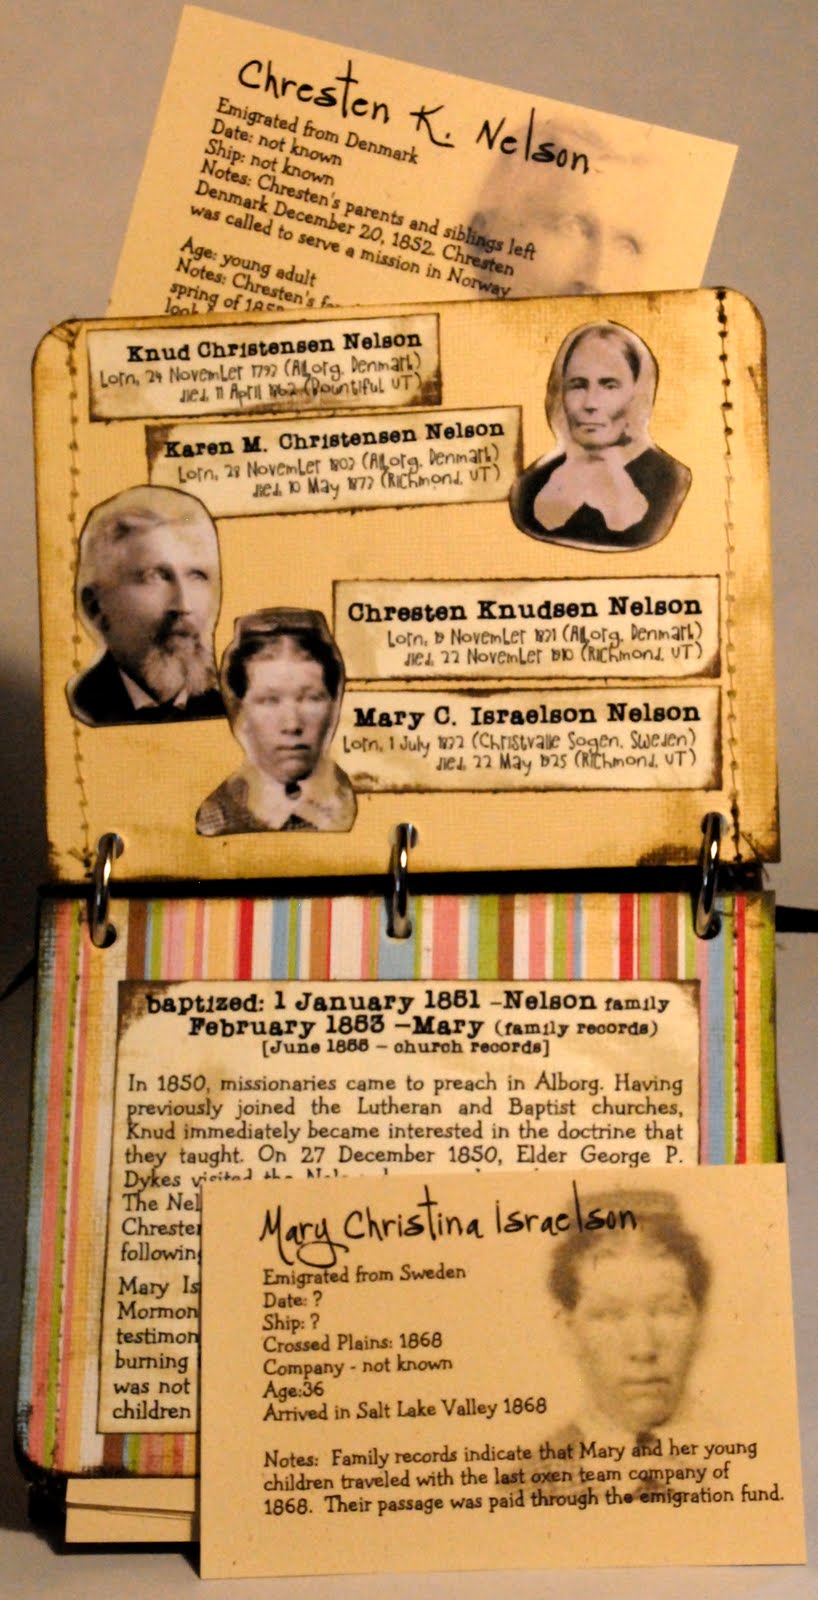 Chresten K. Nelson
Emigrated from Denmark
Date: not known
Ship: not known
Notes: Chresten's parents and siblings left
Denmark December 20, 1852. Chresten
was called to serve a mission in Norway
Age: young adult
Notes: Chresten's
spring of
Knud Christensen Nelson
born, 24 November 1797 (Alborg, Denmark)
died, 11 April 1862 (Bountiful UT)
Karen M. Christensen Nelson
born, 28 November 1802 (Alborg, Denmark)
died, 10 May 1877 (Richmond, UT)
Chresten Knudsen Nelson
born, 19 November 1831 (Alborg, Denmark)
died, 22 November 1910 (Richmond, UT)
Mary C. Israelson Nelson
born, 1 July 1832 (Christvalle Sogen, Sweden)
died, 22 May 1925 (Richmond, UT)
baptized: 1 January 1851 -Nelson family
February 1853 -Mary (family records)
[June 1855 - church records]
In 1850, missionaries came to preach in Alborg. Having
previously joined the Lutheran and Baptist churches,
Knud immediately became interested in the doctrine that
they taught. On 27 December 1850, Elder George P.
Dykes visited the
The Nel
Chreste
followin
Mary Is
Mormon
testimon
burning
was not
children
Mary Christina Israelson
Emigrated from Sweden
Date: ?
Ship: ?
Crossed Plains: 1868
Company - not known
Age:36
Arrived in Salt Lake Valley 1868
Notes: Family records indicate that Mary and her young
children traveled with the last oxen team company of
1868. Their passage was paid through the emigration fund.